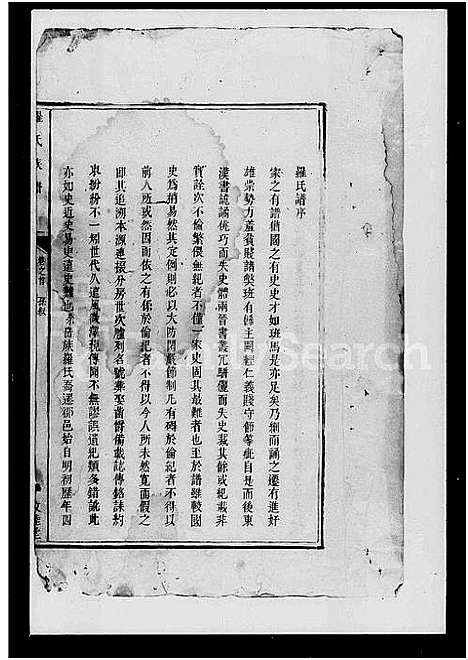 羅氏譜序
家之有譜猶國之有史史才如班馬是亦足矣乃刱而誦之遷有進奸
雄崇勢力羞貧賤諸獘班有𠌯主圖輕仁義賤守節等疵自是而後東
漢書詭譎佻巧而失史體兩晉書叢冗駢儷而失史裁其餘或紀載非
實詮次不倫繁偎無紀者不僅一家史固其最難者也至於譜雖較國
史為稍易然其定例則必以大防閑嚴節制凡有碍於倫紀者不得以
前人所或然因而依之有係於倫紀者不得以今人所未然寬而假之
即其追溯本源連接分房世次臚列名號葬娶齒爵備載誌傳銘誄約
束粉粉不一刱世代久遠風微聲
傳聞不無謬誤遺祀類多錯訛此
亦如史近史易史遠史難也余吾族羅氏喬遷鄒邑始自明初歷年四
羅氏族譜
卷之首
孫敘